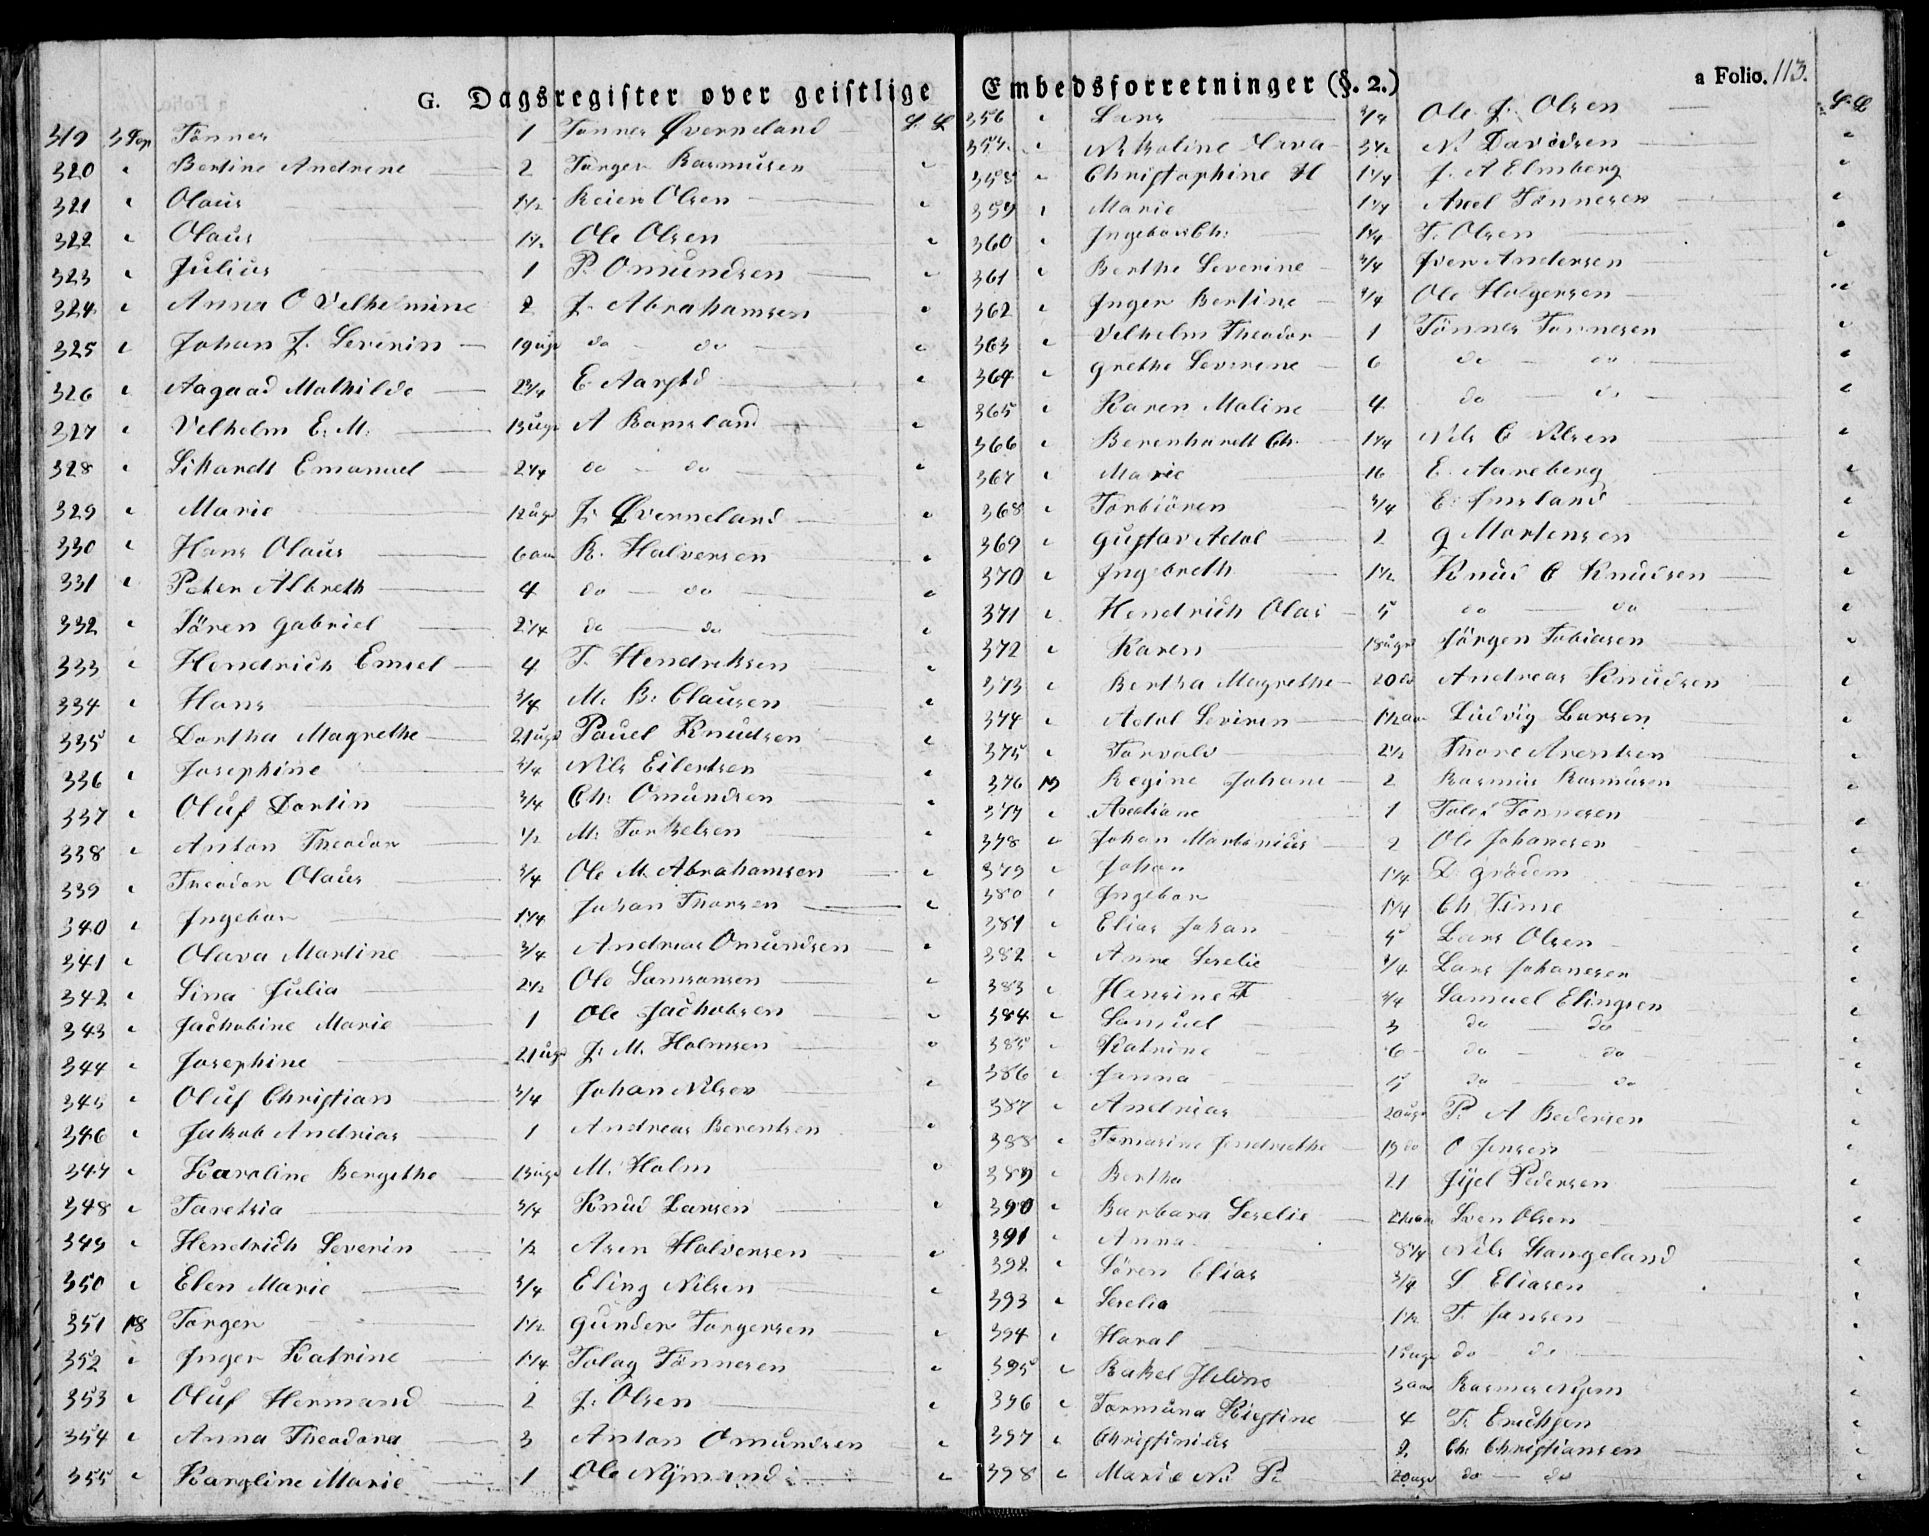 G. Dagsregister over geistlige Embedsforretninger (§. 2.) a Folio. 113.
319 3 Sep Tønnes 1 Tønnes Øverneland
320 " Bertine Andrene 2 Torger Rasmusen "
321 " Olaus 1 1/2 Reier Olsen "
322 " Olaus 1 1/2 Ole Olsen "
323 " Julius 1 P. Omundsen "
324 " Anna O Vilhelmine 2 J. Abrahamsen "
325 " Johan J. Severin 19 uger do do "
326 " Aagaad Mathilde 2 3/4 E. Aarstd "
327 " Vilhelm E. M. 13 uger A Ramsland "
328 " Sikardt Emanuel 2 1/4 do do "
329 " Marie 12 uger J. Øverneland "
330 " Hans Olaus 6 aar R. Halversen "
331 " Peter Albreth 4 do do "
332 " Sören Gabriel 2 1/4 do do "
333 " Hendrich Emiel 4 T. Hendriksen "
334 " Hans 3/4 M. B. Clausen "
335 " Dortha Magrethe 21 uger Pouel Knudsen "
336 " Josephine 3/4 Nils Eilertsen "
337 " Oluf Dortin 3/4 Ch. Omundsen "
338 " Anton Theodor 1/2 M. Torkelsen "
339 " Theodor Olaus 3/4 Ole M. Abrahamsen "
340 " Ingebor 1 1/4 Johan Thorsen "
341 " Olava Martine 3/4 Andreas Omundsen "
342 " Sina Julia 2 1/2 Ole Samsonsen "
343 " Jachobine Marie 1 Ole Jachobsen "
344 " Josephine 21 uger J. M. Holmsen "
345 " Oluf Christian 3/4 Johan Nilsen "
346 " Jakob Andrias 1 Andreas Berentsen "
347 " Karoline Bergithe 13 uger M. Holm "
348 " Taretsia 3/4 Knud Larsen "
349 " Hendrich Severin 1/2 Asen Halversen "
350 " Elen Marie 3/4 Eling Nilsen "
351 18 Torger 1 1/2 Gunder Torgersen "
352 " Inger Katrine 1 1/4 Tolag Tönnesen "
353 " Oluf Hermand 2 J. Olsen "
354 " Anna Theodora 3 Anton Omundsen "
355 " Karoline Marie 1 Ole Nÿmand "
356 " Lars 3/4 Ole J. Olsen
357 " Nikoline 3 1/2 N. Davidsen "
358 " Christophine H 1 1/4 J. A Elmberg "
359 " Marie 1 1/4 Axel Tönnesen "
360 " Ingebor Ch. 1 1/4 T. Olsen "
361 " Berthe Severine 3/4 Iver Andersen "
362 " Inger Bertine 3/4 Ole Holgersen "
363 " Vilhelm Theodor 1 Tönnes Tonnesen "
364 " Grethe Severine 6 do do "
365 " Karen Maline 4 do do "
366 " Berenhardt Ch. 1 1/4 Nils C Nilsen "
367 " Marie 16 E. Aareberg "
368 " Torbiören 3/4 E. Imsland "
369 " Gustav Adol 2 G Mortensen "
370 " Ingebreth 1 1/2 Knud C Knudsen "
371 " Hendrich Olai 5 do do "
372 " Karen 18 uger Jörgen Tobiasen "
373 " Bertha Magrethe 20 do Andreas Knudsen "
374 " Adol Seviren 1 1/2 aar Ludvig Larsen "
375 " Torvald 2 1/2 Thore Arentsen "
376 19 Regine Johane 2 Rasmus Rasmusen "
377 " Andriane 1 Tolef Tonnesen "
378 " Johan Martinius 2 Ole Johanesen "
379 " Johan 1 1/4 D. Grödem "
380 " Ingebor 1 1/4 Ch. Time "
381 " Elias Johan 5 Lars Olsen "
382 " Anne Serelie 3/4 Lars Johanesen "
383 " Hensine T 3/4 Samuel Elingsen "
384 " Samuel 3 do do "
385 " Katrine 6 do do "
386 " Janna 5 do do "
387 " Andrias 20 uger P. A Bedersen "
388 " Tomasine Jendriethe 19 do O Jensen "
389 " Bertha 21 Jÿel Pedersen "
390 " Barbara Serelie Sven Olsen "
391 " Anna 8 1/4 Nils Stangeland "
392 " Sören Elias 3/4 S Eliasen "
393 " Serelia 1 1/2 T. Jansen "
394 " Haral 15 uger do do "
395 " Rakel 3 aar Rasmus "
396 " Tormuna Kirstine 4 T. Erichsen "
397 " Christinius 2 Ch. Christiansen "
398 " Marie N. P. 20 uger do do "